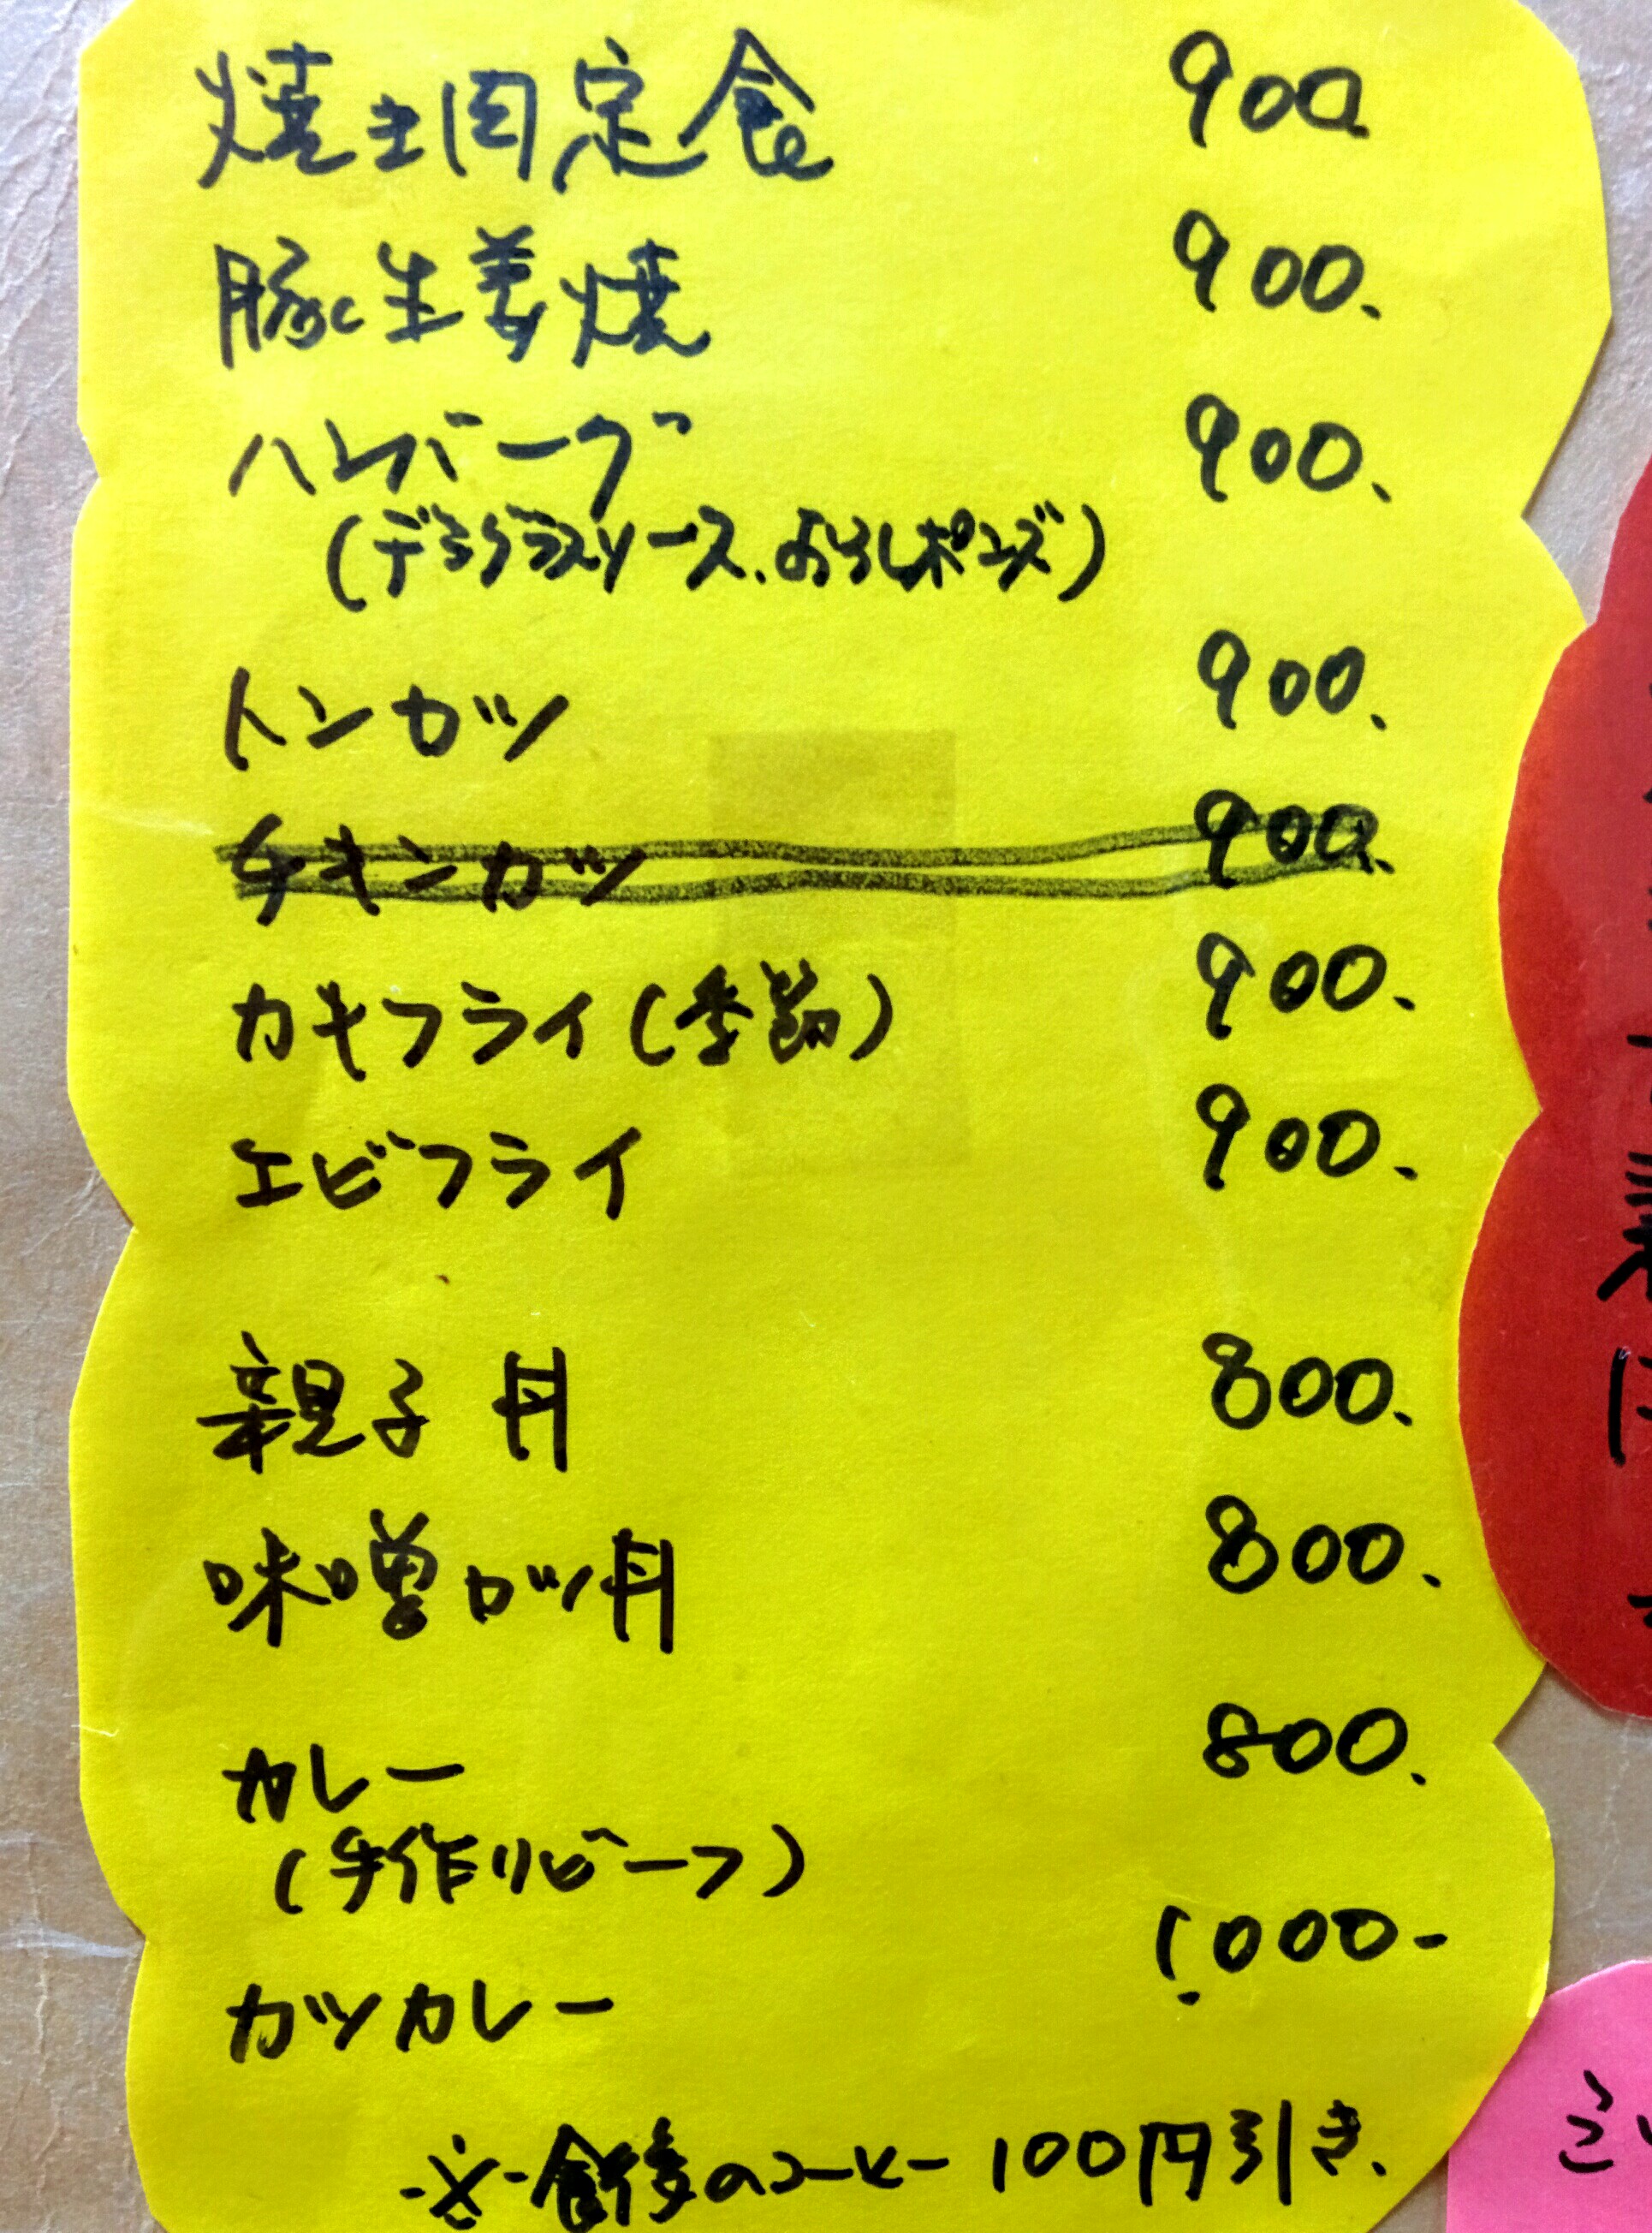 焼き肉定食 900
豚生姜焼 900.
ハンバーグ 900.
(デミグラスソース、おろしポンズ)
トンカツ 900.
チキンカツ 900.
カキフライ(季節) 900.
エビフライ 900.
親子丼 800.
味噌カツ丼 800.
カレー 800.
(手作りビーフ)
カツカレー 1,000-
※食後のコーヒー100円引き.